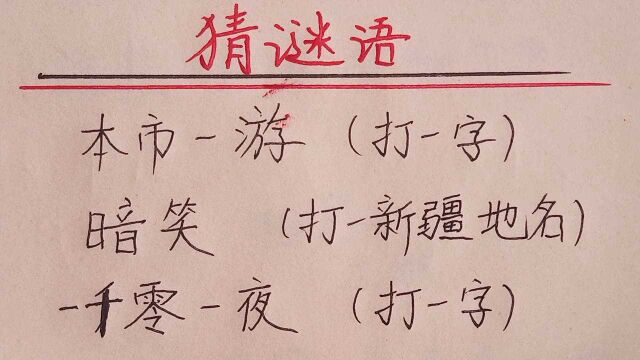 猜谜语
本市一游（打一字）
暗笑（打一新疆地名）
一千零一夜（打一字）